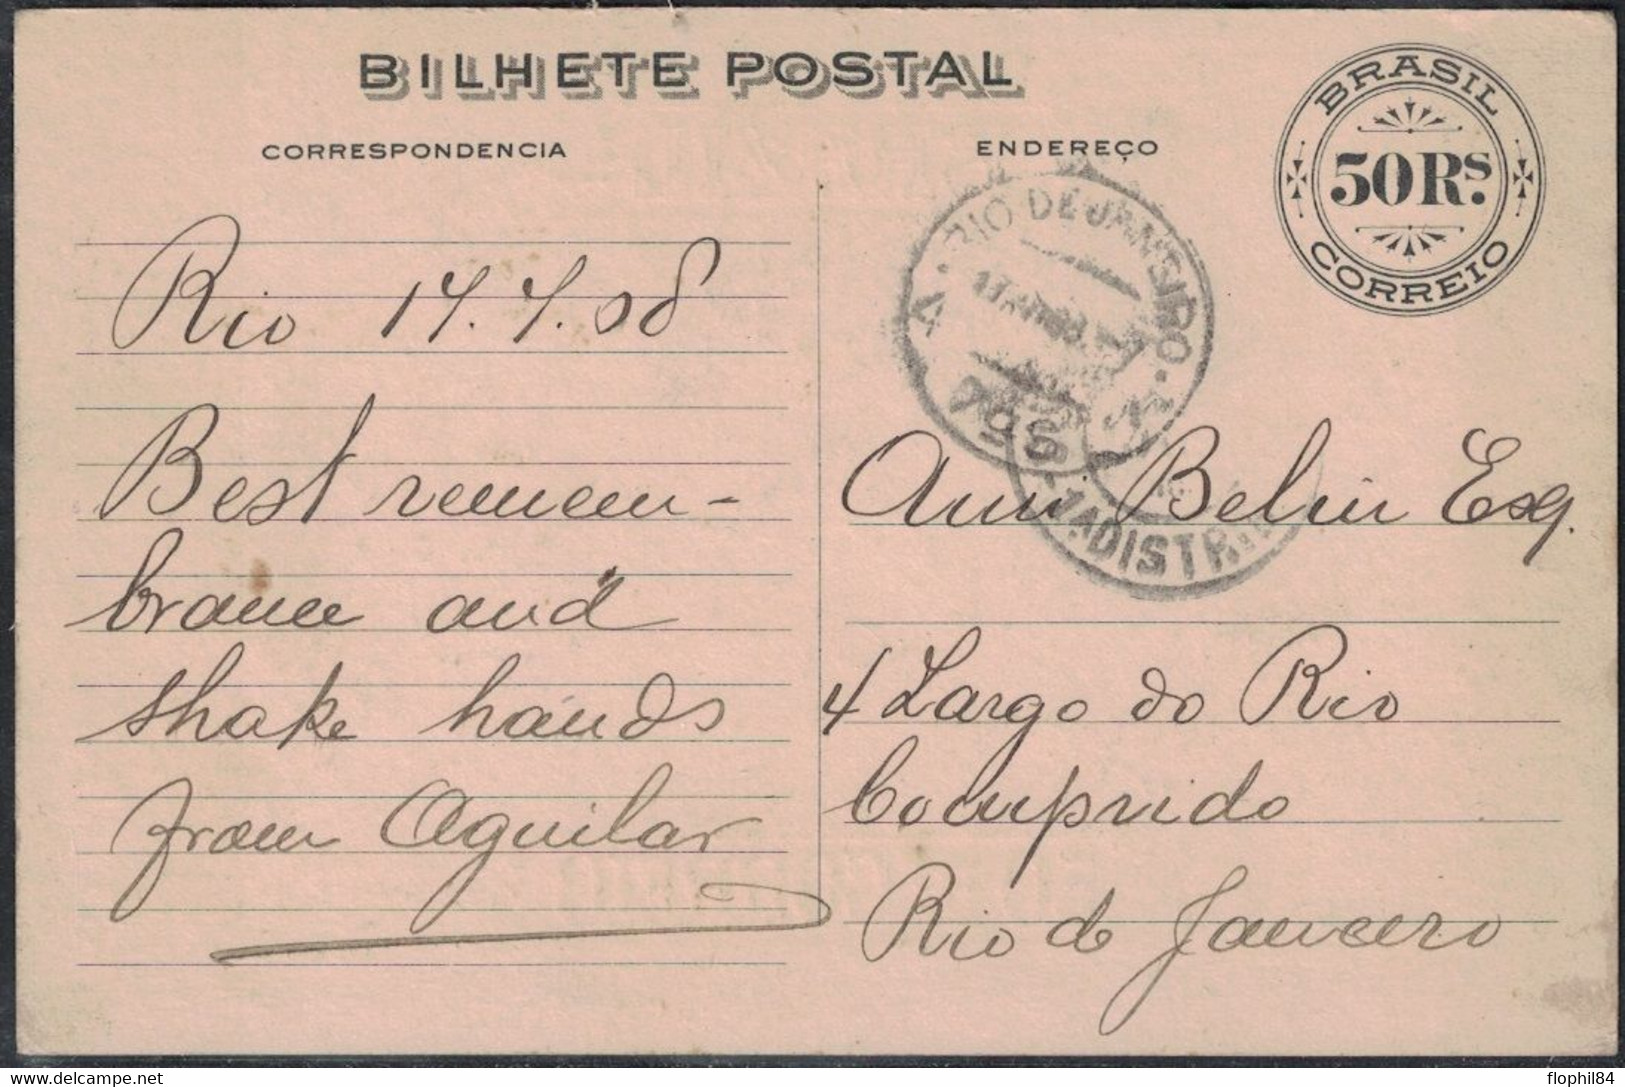 BILHETE POSTAL
CORRESPONDENCIA
ENDEREÇO
BRASIL
50 RS.
CORREIO
RIO DE JANEIRO
1ª DISTR.
Rio 17.7.08
Best remem-
brance and
shake hands
from Aguilar
Ami Belin Esq.
4 Largo do Rio
Comprido
Rio de Janeiro
flophil84